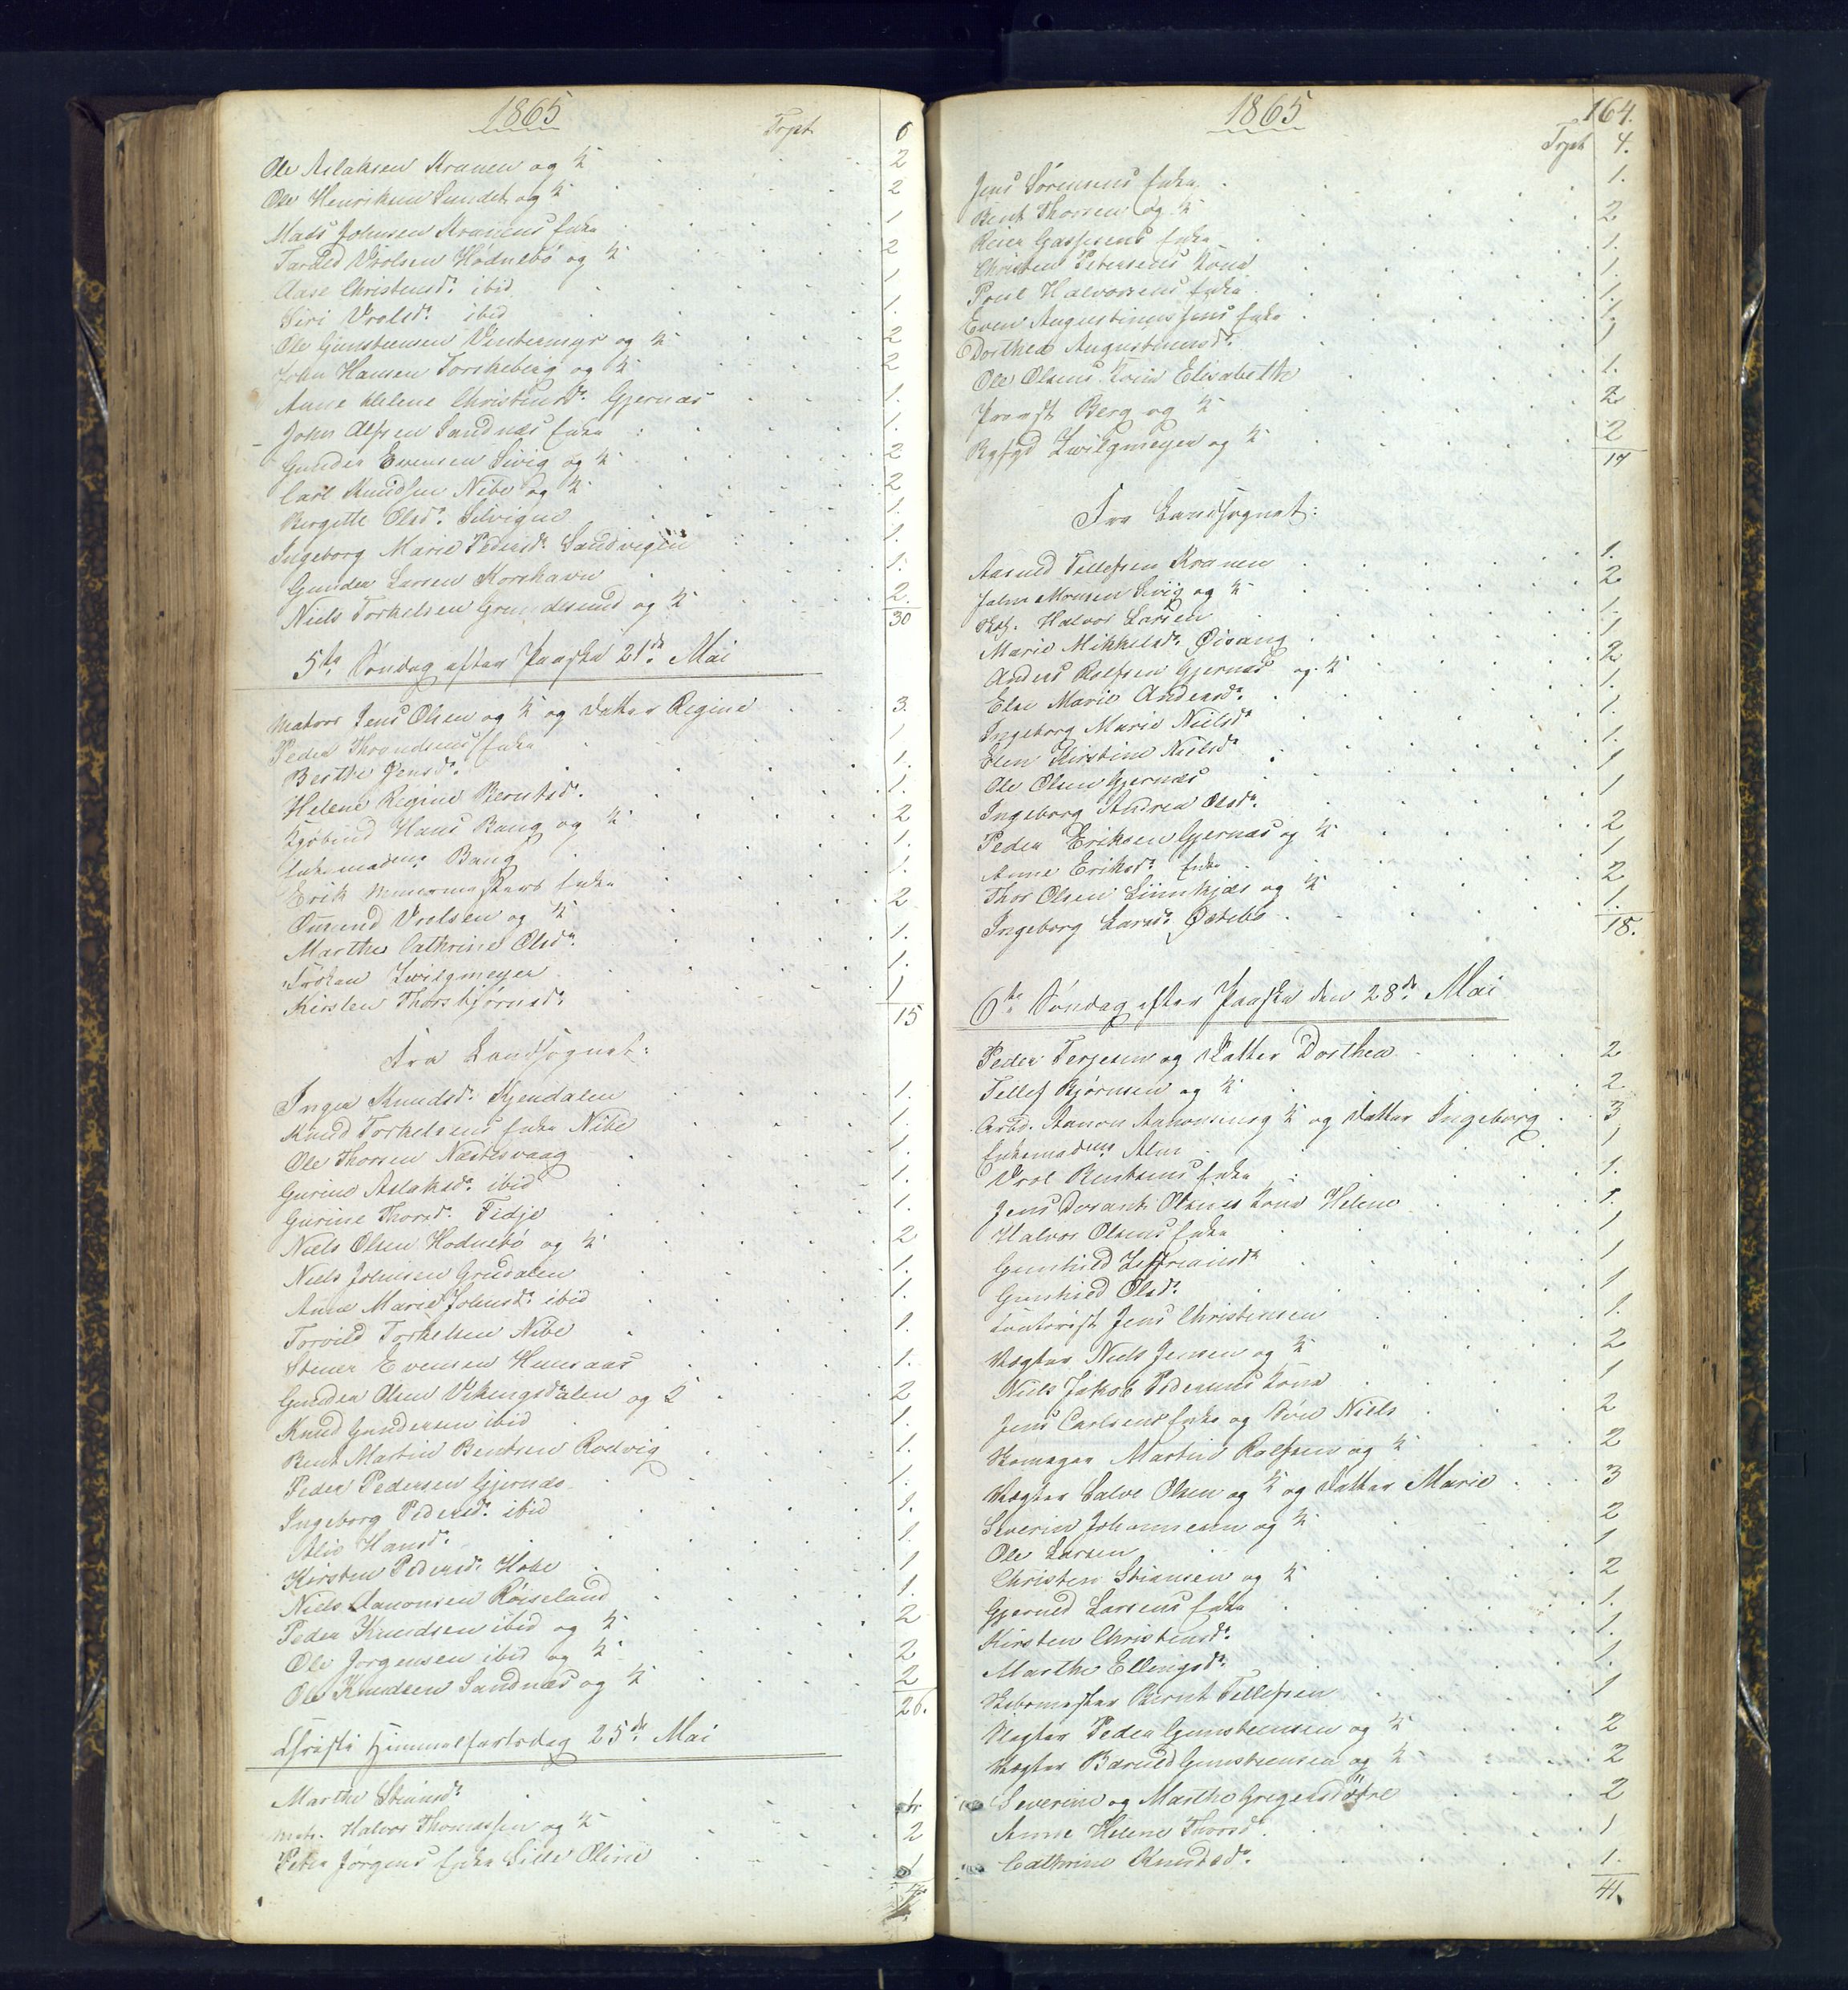 1865
Trpt 6
Ole Aslaksen Kranen og K 2
Ole Henriksen Sundet og K 2
Mads Johnsen Kranens Enke 1
Tarald Vrolsen Hødnebø og K 2
Aase Christensdr ibid 1
Siri Vrolsdr ibid 1.
Ole Gunsteensen Vintermyr og K 2
John Hansen Torskeberg og K 2
Anne Helene Christensdr Gjernæs 1.
John Alfsen Sandnæs Enke 1.
Gunder Evensen Sivig og K 2
Carl Knudsen Nibe og K 2
Birgitte Olsdr Silvigen 1.
Ingeborg Marie Pedersdr Sandvigen 1.
Gunder Larsen Korshavn 1.
Niels Torkelsen Grundesund og K 2.
30
5te Søndag efter Paaske 21de Mai
Matros Jens Olsen og K og Datter Regine 3.
Peder Throndsens Enke 1
Berthe Jensdr 1.
Helene Regine Berntsdr. 1.
Kjøbmd Hans Bang og K 2
Enkemadme Bang 1.
Erik Murmesters Enke 1.
Omund Vrolsen og K 2
Marthe Cathrine Olsdr. 1.
Frøken Zwilgmeyer 1.
Kirsten Thorsbjørnsdr 1
15
Fra Landsognet:
Inger Knudsdr Kjendalen 1.
Knud Torkelsens Enke Nibe 1.
Ole Thorsen Næstesvaag 1.
Gurine Aslaksdr ibid 1.
Gurine Thorsdr. Fidje 1.
Niels Olsen Hodnebø og K 2
Niels Johnsen Grudalen 1.
Anne Marie Johnsdr ibid 1.
Torvild Torkelsen Nibe 1.
Stener Evensen Hunsaas 1.
Gunder Olsen Vikingsdalen og K 2
Knud Gundersen ibid 1.
Bent Martin Bentsen Rødvig 1.
Peder Pedersen Gjernæs 1.
Ingeborg Pedersdr ibid 1.
Alis Hansdr 1.
Kirsten Pedersdr Hobe 1
Niels Aanonsen Røiseland 1.
Peder Knudsen ibid og K 2
Ole Jørgensen ibid og K 2
Ole Knudsen Sandnæs og K 2
26.
Christi Himmelfartsdag 25de Mai
Marthe Steinsdr 1.
Matr. Halvor Thomassen og K 2
Peder Jørgens Enke Sille Oline 1
4.
1865 164.
Trpt 4.
Jens Sørensens Enke 1.
Bent Thorsen og K 2
Reier Gassesens Enke 1.
Christen Petersens Kone 1.
Poul Halvorsens Enke 1.
Even Augustinussens Enke 1.
Dorthea Augustinusdr. 1
Ole Olsens Kone Elisabeth 1.
Provst Berg og K 2
Bgfgd Zwilgmeyer og K 2
17
Fra Landsognet:
Aasuld Tellefsen Kranen 1.
John Monsen Sivig og K 2
Halvor Larsen 1.
Marie Mikkelsdr. Øisang 1
Anders Rolfsen Gjernæs og K 2
Else Marie Andersdr. 1.
Ingeborg Marie Nielsdr 1.
Elen Kirstine Nielsdr 1.
Ole Olsen Gjernæs 1
Ingeborg Andrea Olsdr. 1
Peder Eriksen Gjernæs og K 2
Anne Eriksdr Enke 1
Thor Olsen Liimkjær og K 2
Ingeborg Larsdr Østebø 1.
18.
6te Søndag efter Paaske den 28de Mai
Peder Terjesen og Datter Dorthea 2
Tellef Bjørnsen og K 2
Arbd. Aanon Aanonsen og K og Datter Ingeborg 3
Enkemadme Alm 1
Vrol Bentsens Enke 1.
Jens Olsens Kone Helene 1.
Halvor Olsens Enke 1
Gunhild Zeffriansdr 1
Gunhild Olsdr. 1
Kontorist Jens Christensen 1.
Vægter Niels Jensen og K 2
Niels Jakob Pedersens Kone 1
Jens Carlsens Enke og Søn Niels 2
Skomager Martin Rolfsen og K 2
Vægter Salve Olsen og K og Datter Marie 3
Severin Johannesen og K 2
Ole Larsen 1
Christen Stiansen og K 2
Gjeruld Larsens Enke 1.
Kirsten Christensdr. 1.
Marthe Ellingsdr. 1.
Skibsmester Bernt Tellefsen 1
Vægter Peder Gunsteensen og K 2
Vægter Baruld Gunsteensen og K 2
Severine og Marthe Gregersdøtre 2
Anne Helene Thorsdr. 1
Cathrine Knudsdr. 1.
41.